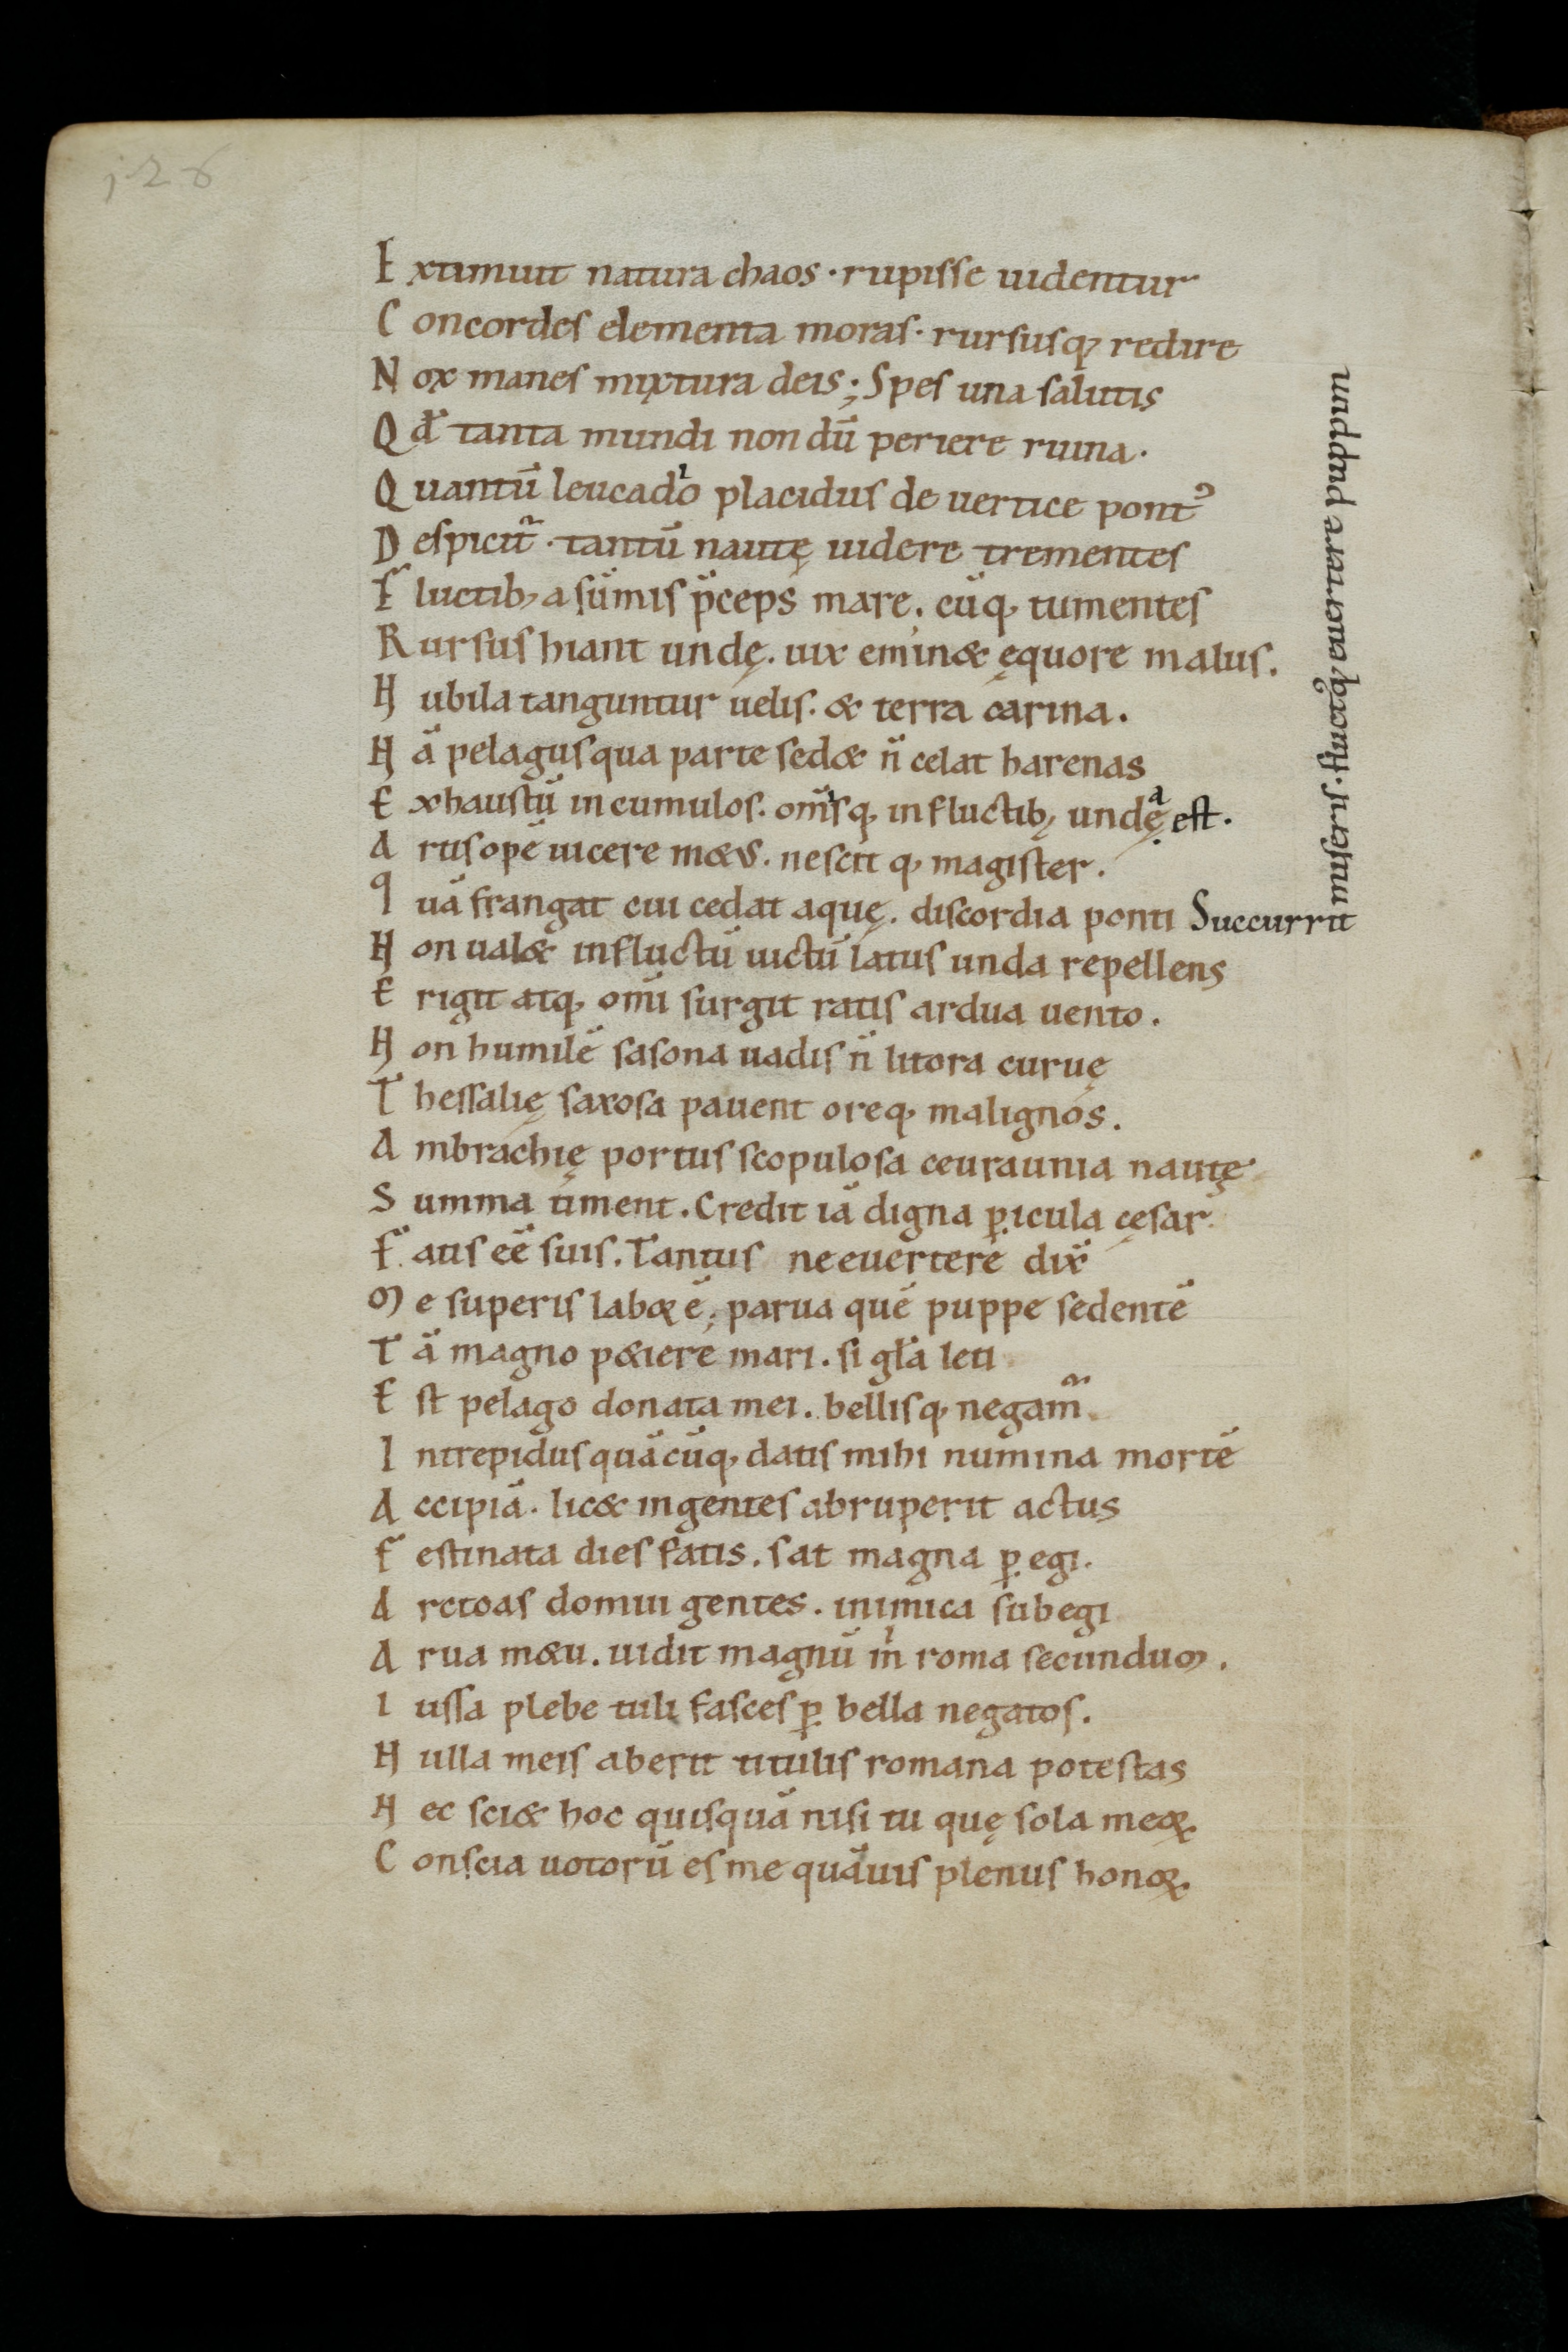 128
Extimuit natura chaos · rupisse uidentur
Concordes elementa moras · rursusq; redire
Nox manes mixtura deis; Spes una salutis
Qd̄ tanta mundi non dū periere ruina ·
Quantū leucadıͥo placidus de uertice pontꝰ
Despicit᷑ · tantū nautę uidere trementes
Fluctib; a sūmis p̄ceps mare . cūq; tumentes
Rursus hiant undę . uix emin& ęquore malus .
Nubila tanguntur uelis . & terra carina .
Nā pelagus qua parte sed& n̄ celat harenas
Exhaustū in cumulos . om̄isq; in fluctib; undęͣ est .
Artis opē uicere m&us . nescit q; magister .
quā frangat cui cedat aquę . discordia ponti Succurrit
miseris . fluctꝰq; euertere puppim
Non ual& in fluctū uictū latus unda repellens
Erigit atq; om̄i surgit ratis ardua uento .
Non humilē sasona uadis n̄ litora curuę
Thessalię saxosa pauent oreq; malignos .
Ambrachię portus scopulosa ceuraunia nautę
Summa timent . Credit iā digna ꝑicula cęsar
Fatis eē suis . Tantus ne euertere dix̄
Me superis labor ē; parua quē puppe sedentē
Tā magno p&iere mari . si gl̄a leti
Est pelago donata mei . bellisq; negam᷑
Intrepidus quācūq; datis mihi numina mortē
Accipiā . lic& ingentes abruperit actus
Festinata dies fatis . sat magna ꝑegi .
Arctoas domui gentes . inimica subegi
Arua m&u . uidit magnū m̍ roma secundum .
Iussa plebe tuli fasces ꝑ bella negatos .
Nulla meis aberit titulis romana potestas
Nec sci& hoc quisquā nisi tu quę sola meoꝝ
Conscia uotorū es me quāuis plenus honoꝝ